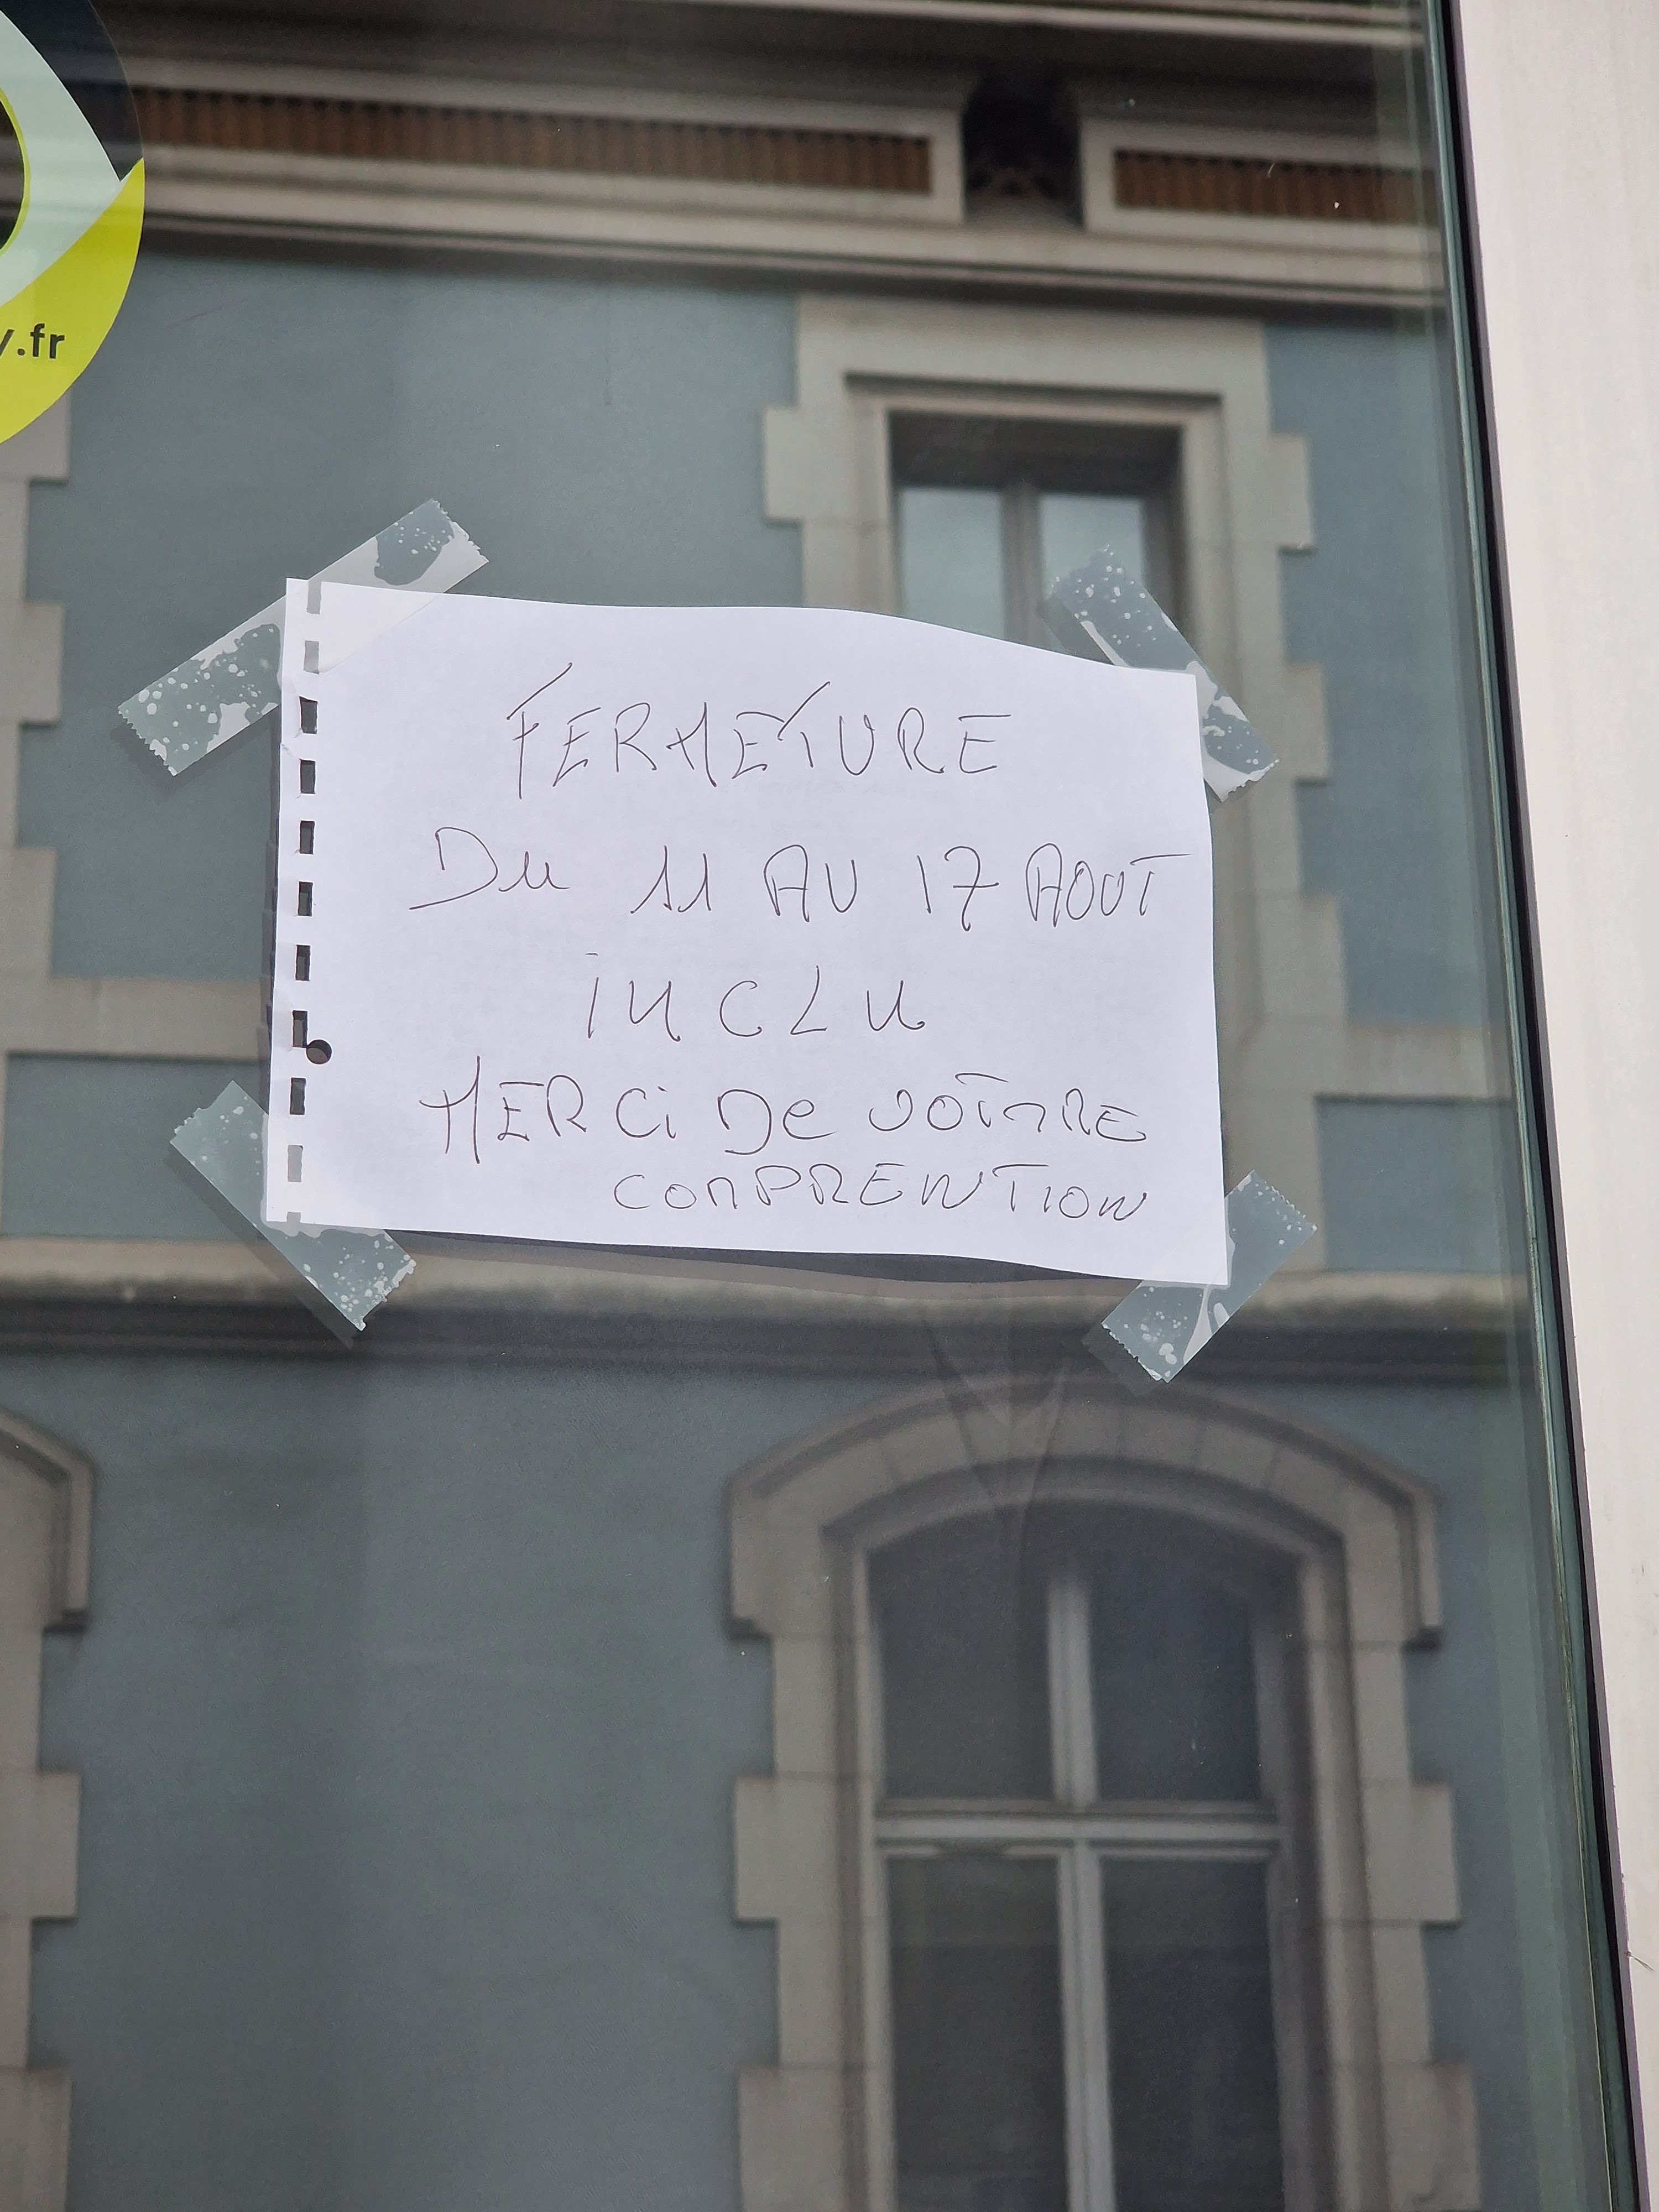 y.fr
FERMETURE
Du 11 AU 17 AOUT
iNCLu
MERCi De VOTRE
COMPRENTION